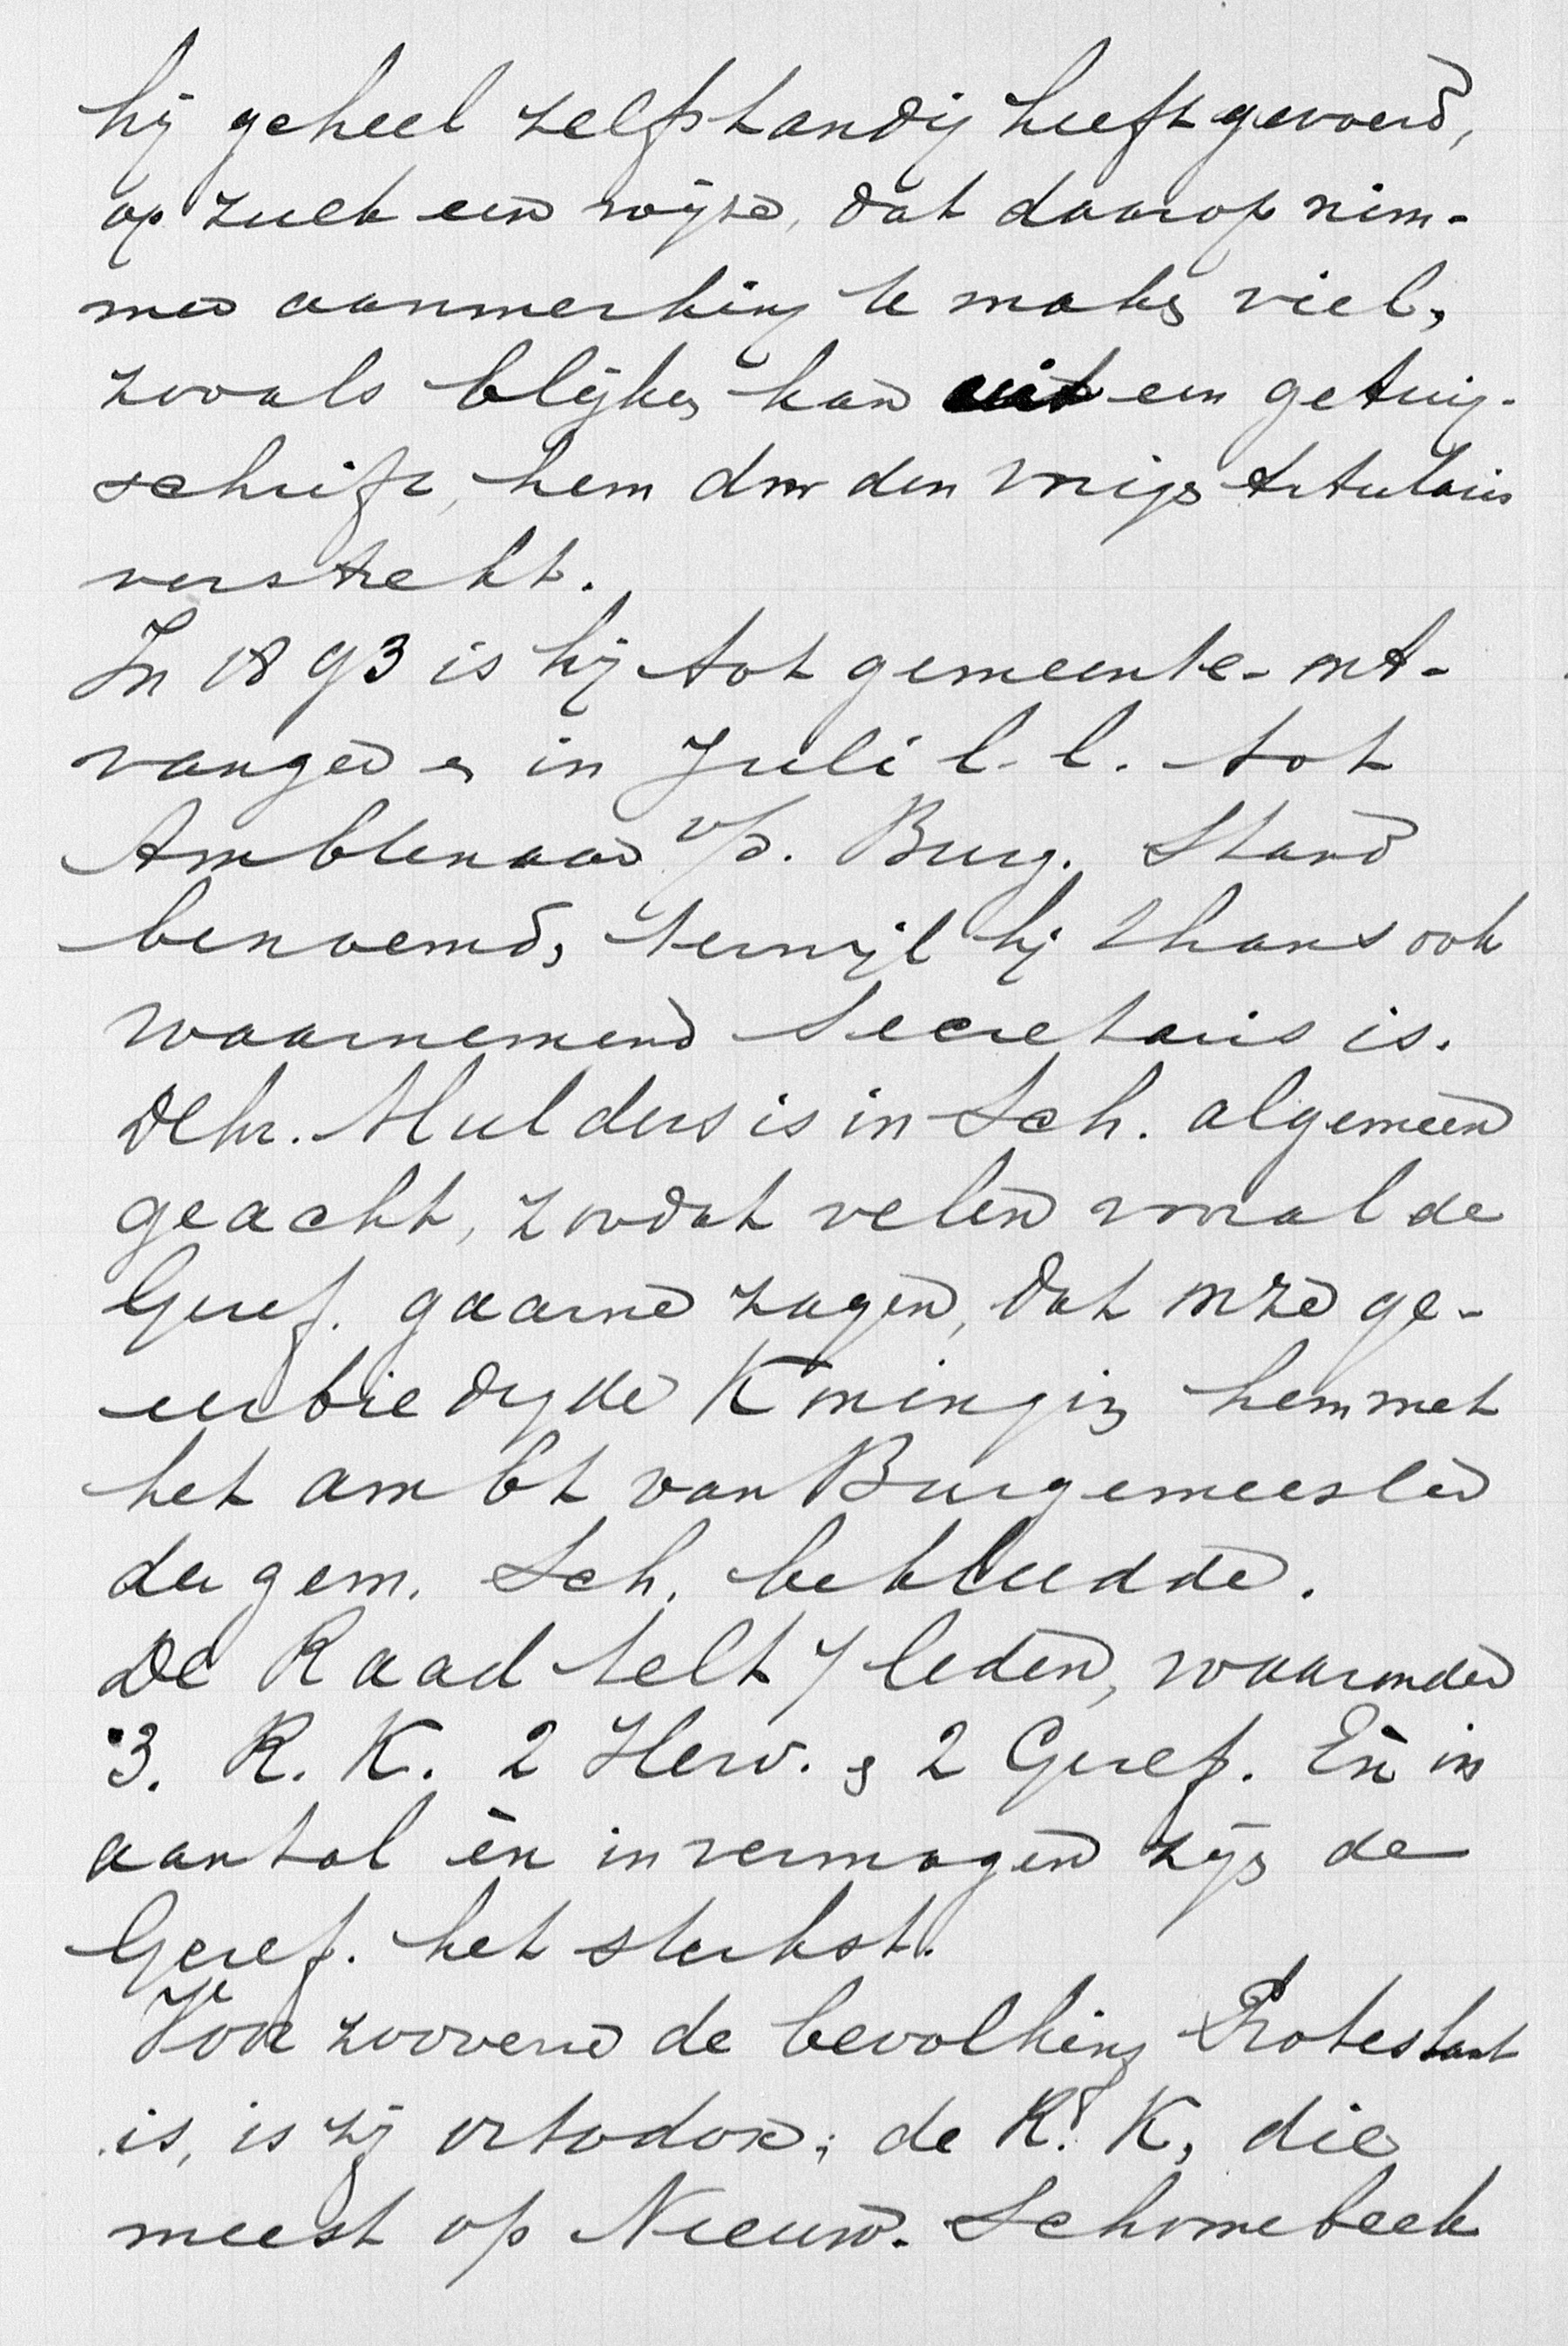 hij geheel zelfstandig heeft gevoerd,
op zulk een wijze, dat daarop nim-
mer aanmerking te maken viel,
zooals blijken kan uit een getuig-
schrift, hem door den vorigen titularis
verstrekt.
In 1893 is hij tot gemeente-ont-
vanger en in Juli l.l. tot
Ambtenaar v/d. Burg. Stand
benoemd, terwijl hij thans ook
waarnemend Secretaris is.
De hr. Mulders is in Sch. algemeen
geacht, zoodat velen vooral de
Geref. gaarne zagen, dat onze ge-
eerbiedigde Koningin hem met
het ambt van Burgemeester
der gem. Sch. bekleedde.
De Raad telt 7 leden, waaronder
3. R. K. 2 Herv. en 2 Geref. Èn in
aantal èn in vermogen zijn de
Geref. het sterkst.
Voor zooverre de bevolking Protestant
is, is zij ortodox; de R. K, die
meest op Nieuw-Schoonebeek